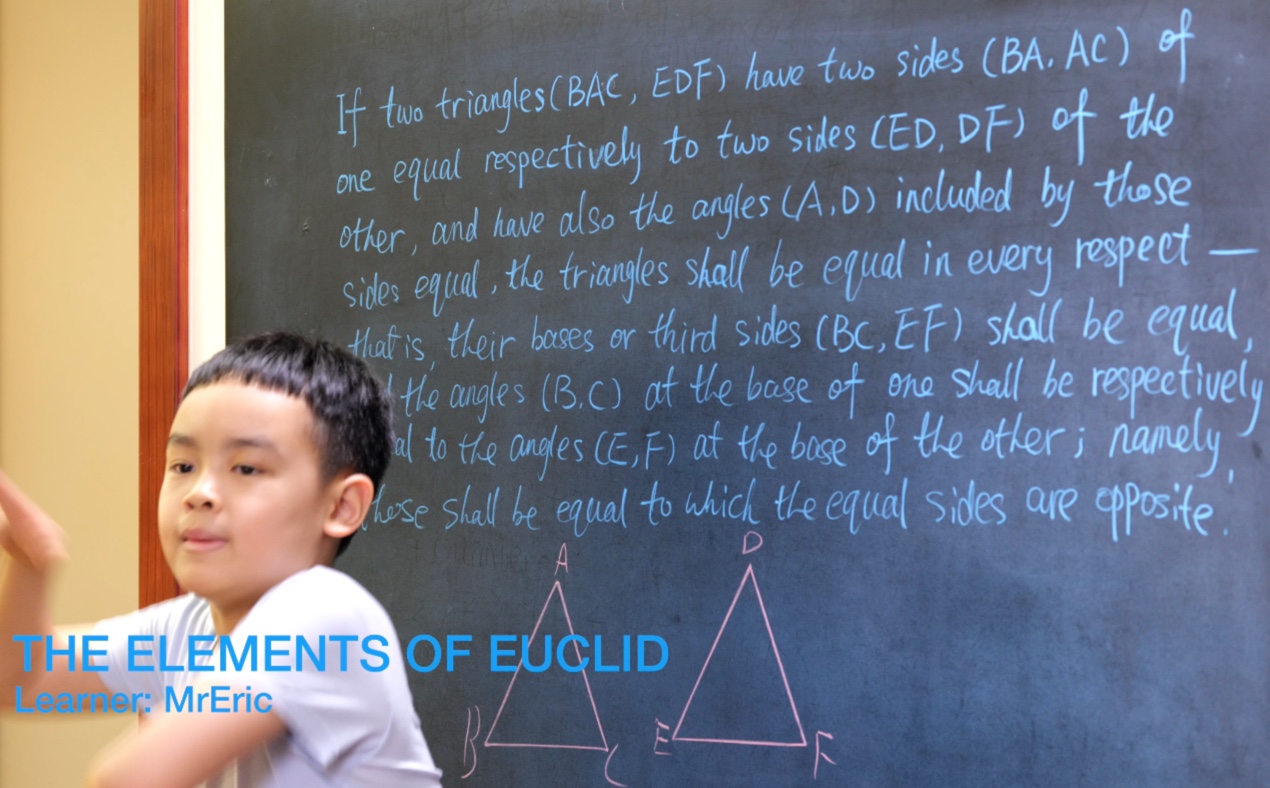 If two triangles (BAC, EDF) have two sides (BA, AC) of
one equal respectively to two sides (ED, DF) of the
other, and have also the angles (A,D) included by those
sides equal, the triangles shall be equal in every respect —
that is, their bases or third sides (BC, EF) shall be equal,
the angles (B,C) at the base of one shall be respectively
al to the angles (E,F) at the base of the other; namely,
those shall be equal to which the equal sides are opposite.
A
D
THE ELEMENTS OF EUCLID
Learner: MrEric
B
C
E
F